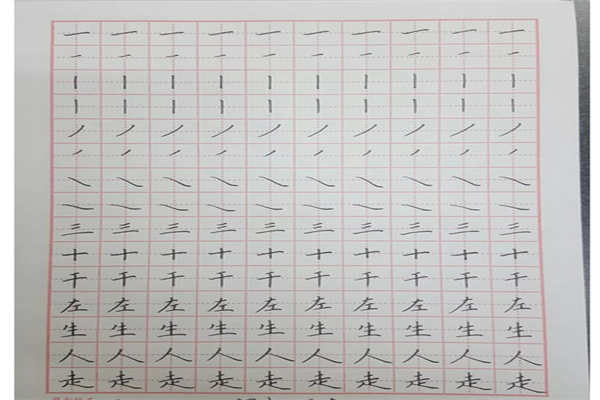 一 一 一 一 一 一 一 一 一 一
一 一 一 一 一 一 一 一 一 一
丨 丨 丨 丨 丨 丨 丨 丨 丨 丨
丨 丨 丨 丨 丨 丨 丨 丨 丨 丨
丿 丿 丿 丿 丿 丿 丿 丿 丿 丿
丿 丿 丿 丿 丿 丿 丿 丿 丿 丿
㇏ ㇏ ㇏ ㇏ ㇏ ㇏ ㇏ ㇏ ㇏ ㇏
㇏ ㇏ ㇏ ㇏ ㇏ ㇏ ㇏ ㇏ ㇏ ㇏
三 三 三 三 三 三 三 三 三 三
十 十 十 十 十 十 十 十 十 十
千 千 千 千 千 千 千 千 千 千
左 左 左 左 左 左 左 左 左 左
生 生 生 生 生 生 生 生 生 生
人 人 人 人 人 人 人 人 人 人
走 走 走 走 走 走 走 走 走 走